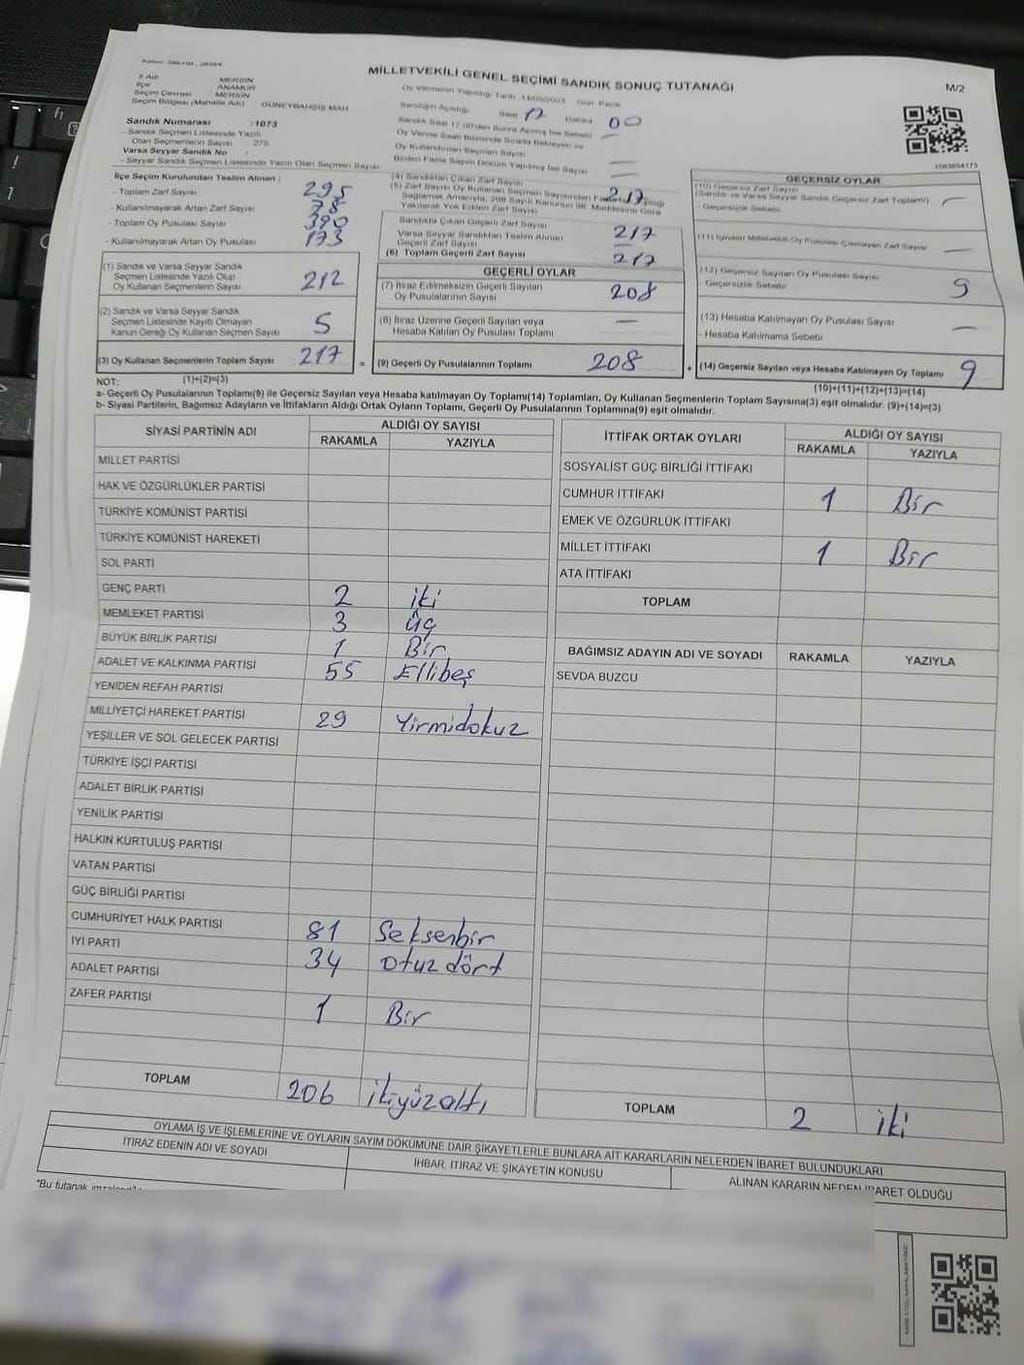 MİLLETVEKİLİ GENEL SEÇİMİ SANDIK SONUÇ TUTANAĞI
M/2
İl Adı MERSİN
İlçe ANAMUR
Seçim Çevresi MERSİN
Seçim Bölgesi (Mahalle Adı)
Sandık Numarası :1073
- Sandık Seçmen Listesinde Yazılı
Olan Seçmenlerin Sayısı 276
Varsa Seyyar Sandık No :
- Seyyar Sandık Seçmen Listesinde Yazılı Olan Seçmen Sayısı
Sandığın Açıldığı Saat 17 Dakika 00
1083654173
İlçe Seçim Kurulundan Teslim Alınan ;
- Toplam Zarf Sayısı 295
- Kullanılmayarak Artan Zarf Sayısı 78
- Toplam Oy Pusulası Sayısı 390
- Kullanılmayarak Artan Oy Pusulası 173
(1) Sandık ve Varsa Seyyar Sandık
Seçmen Listesinde Yazılı Olup
Oy Kullanan Seçmenlerin Sayısı 212
(2) Sandık ve Varsa Seyyar Sandık
Seçmen Listesinde Kayıtlı Olmayan
Kanun Gereği Oy Kullanan Seçmen Sayısı 5
(3) Oy Kullanan Seçmenlerin Toplam Sayısı 217
(1)+(2)=(3)
(4) Sandıktan Çıkan Zarf Sayısı 217
Sandıkta Çıkan Geçerli Zarf Sayısı 217
Varsa Seyyar Sandıktan Teslim Alınan
Geçerli Zarf Sayısı —
(6) Toplam Geçerli Zarf Sayısı 217
GEÇERLİ OYLAR
(7) İtiraz Edilmeksizin Geçerli Sayılan
Oy Pusulalarının Sayısı 208
(8) İtiraz Üzerine Geçerli Sayılan veya
Hesaba Katılan Oy Pusulası Toplamı —
= (9) Geçerli Oy Pusulalarının Toplamı 208
GEÇERSİZ OYLAR
(10) Geçersiz Zarf Sayısı
(Sandık ve Varsa Seyyar Sandık Geçersiz Zarf Toplamı) —
- Geçersizlik Sebebi
(12) Geçersiz Sayılan Oy Pusulası Sayısı
- Geçersizlik Sebebi 9
(13) Hesaba Katılmayan Oy Pusulası Sayısı
- Hesaba Katılmama Sebebi —
+ (14) Geçersiz Sayılan veya Hesaba Katılmayan Oy Toplamı 9
(10)+(11)+(12)+(13)=(14)
NOT:
a- Geçerli Oy Pusulalarının Toplamı(9) ile Geçersiz Sayılan veya Hesaba katılmayan Oy Toplamı(14) Toplamları, Oy Kullanan Seçmenlerin Toplam Sayısına(3) eşit olmalıdır. (9)+(14)=(3)
b- Siyasi Partilerin, Bağımsız Adayların ve İttifakların Aldığı Ortak Oyların Toplamı, Geçerli Oy Pusulalarının Toplamına(9) eşit olmalıdır.
SİYASİ PARTİNİN ADI ALDIĞI OY SAYISI
RAKAMLA YAZIYLA
MİLLET PARTİSİ
HAK VE ÖZGÜRLÜKLER PARTİSİ
TÜRKİYE KOMÜNİST PARTİSİ
TÜRKİYE KOMÜNİST HAREKETİ
SOL PARTİ
GENÇ PARTİ 2 iki
MEMLEKET PARTİSİ 3 üç
BÜYÜK BİRLİK PARTİSİ 1 Bir
ADALET VE KALKINMA PARTİSİ 55 Ellibeş
YENİDEN REFAH PARTİSİ
MİLLİYETÇİ HAREKET PARTİSİ 29 Yirmidokuz
YEŞİLLER VE SOL GELECEK PARTİSİ
TÜRKİYE İŞÇİ PARTİSİ
ADALET BİRLİK PARTİSİ
YENİLİK PARTİSİ
HALKIN KURTULUŞ PARTİSİ
VATAN PARTİSİ
GÜÇ BİRLİĞİ PARTİSİ
CUMHURİYET HALK PARTİSİ 81 Seksenbir
İYİ PARTİ 34 Otuz dört
ADALET PARTİSİ
ZAFER PARTİSİ 1 Bir
TOPLAM 206 ikiyüzaltı
İTTİFAK ORTAK OYLARI ALDIĞI OY SAYISI
RAKAMLA YAZIYLA
SOSYALİST GÜÇ BİRLİĞİ İTTİFAKI
CUMHUR İTTİFAKI 1 Bir
EMEK VE ÖZGÜRLÜK İTTİFAKI
MİLLET İTTİFAKI 1 Bir
ATA İTTİFAKI
TOPLAM
BAĞIMSIZ ADAYIN ADI VE SOYADI RAKAMLA YAZIYLA
SEVDA BUZCU
TOPLAM 2 iki
OYLAMA İŞ VE İŞLEMLERİNE VE OYLARIN SAYIM DÖKÜMÜNE DAİR ŞİKAYETLERLE BUNLARA AİT KARARLARIN NELERDEN İBARET BULUNDUKLARI
İTİRAZ EDENİN ADI VE SOYADI
İHBAR, İTİRAZ VE ŞİKAYETİN KONUSU
ALINAN KARARIN NEDEN İBARET OLDUĞU
"Bu tutanak